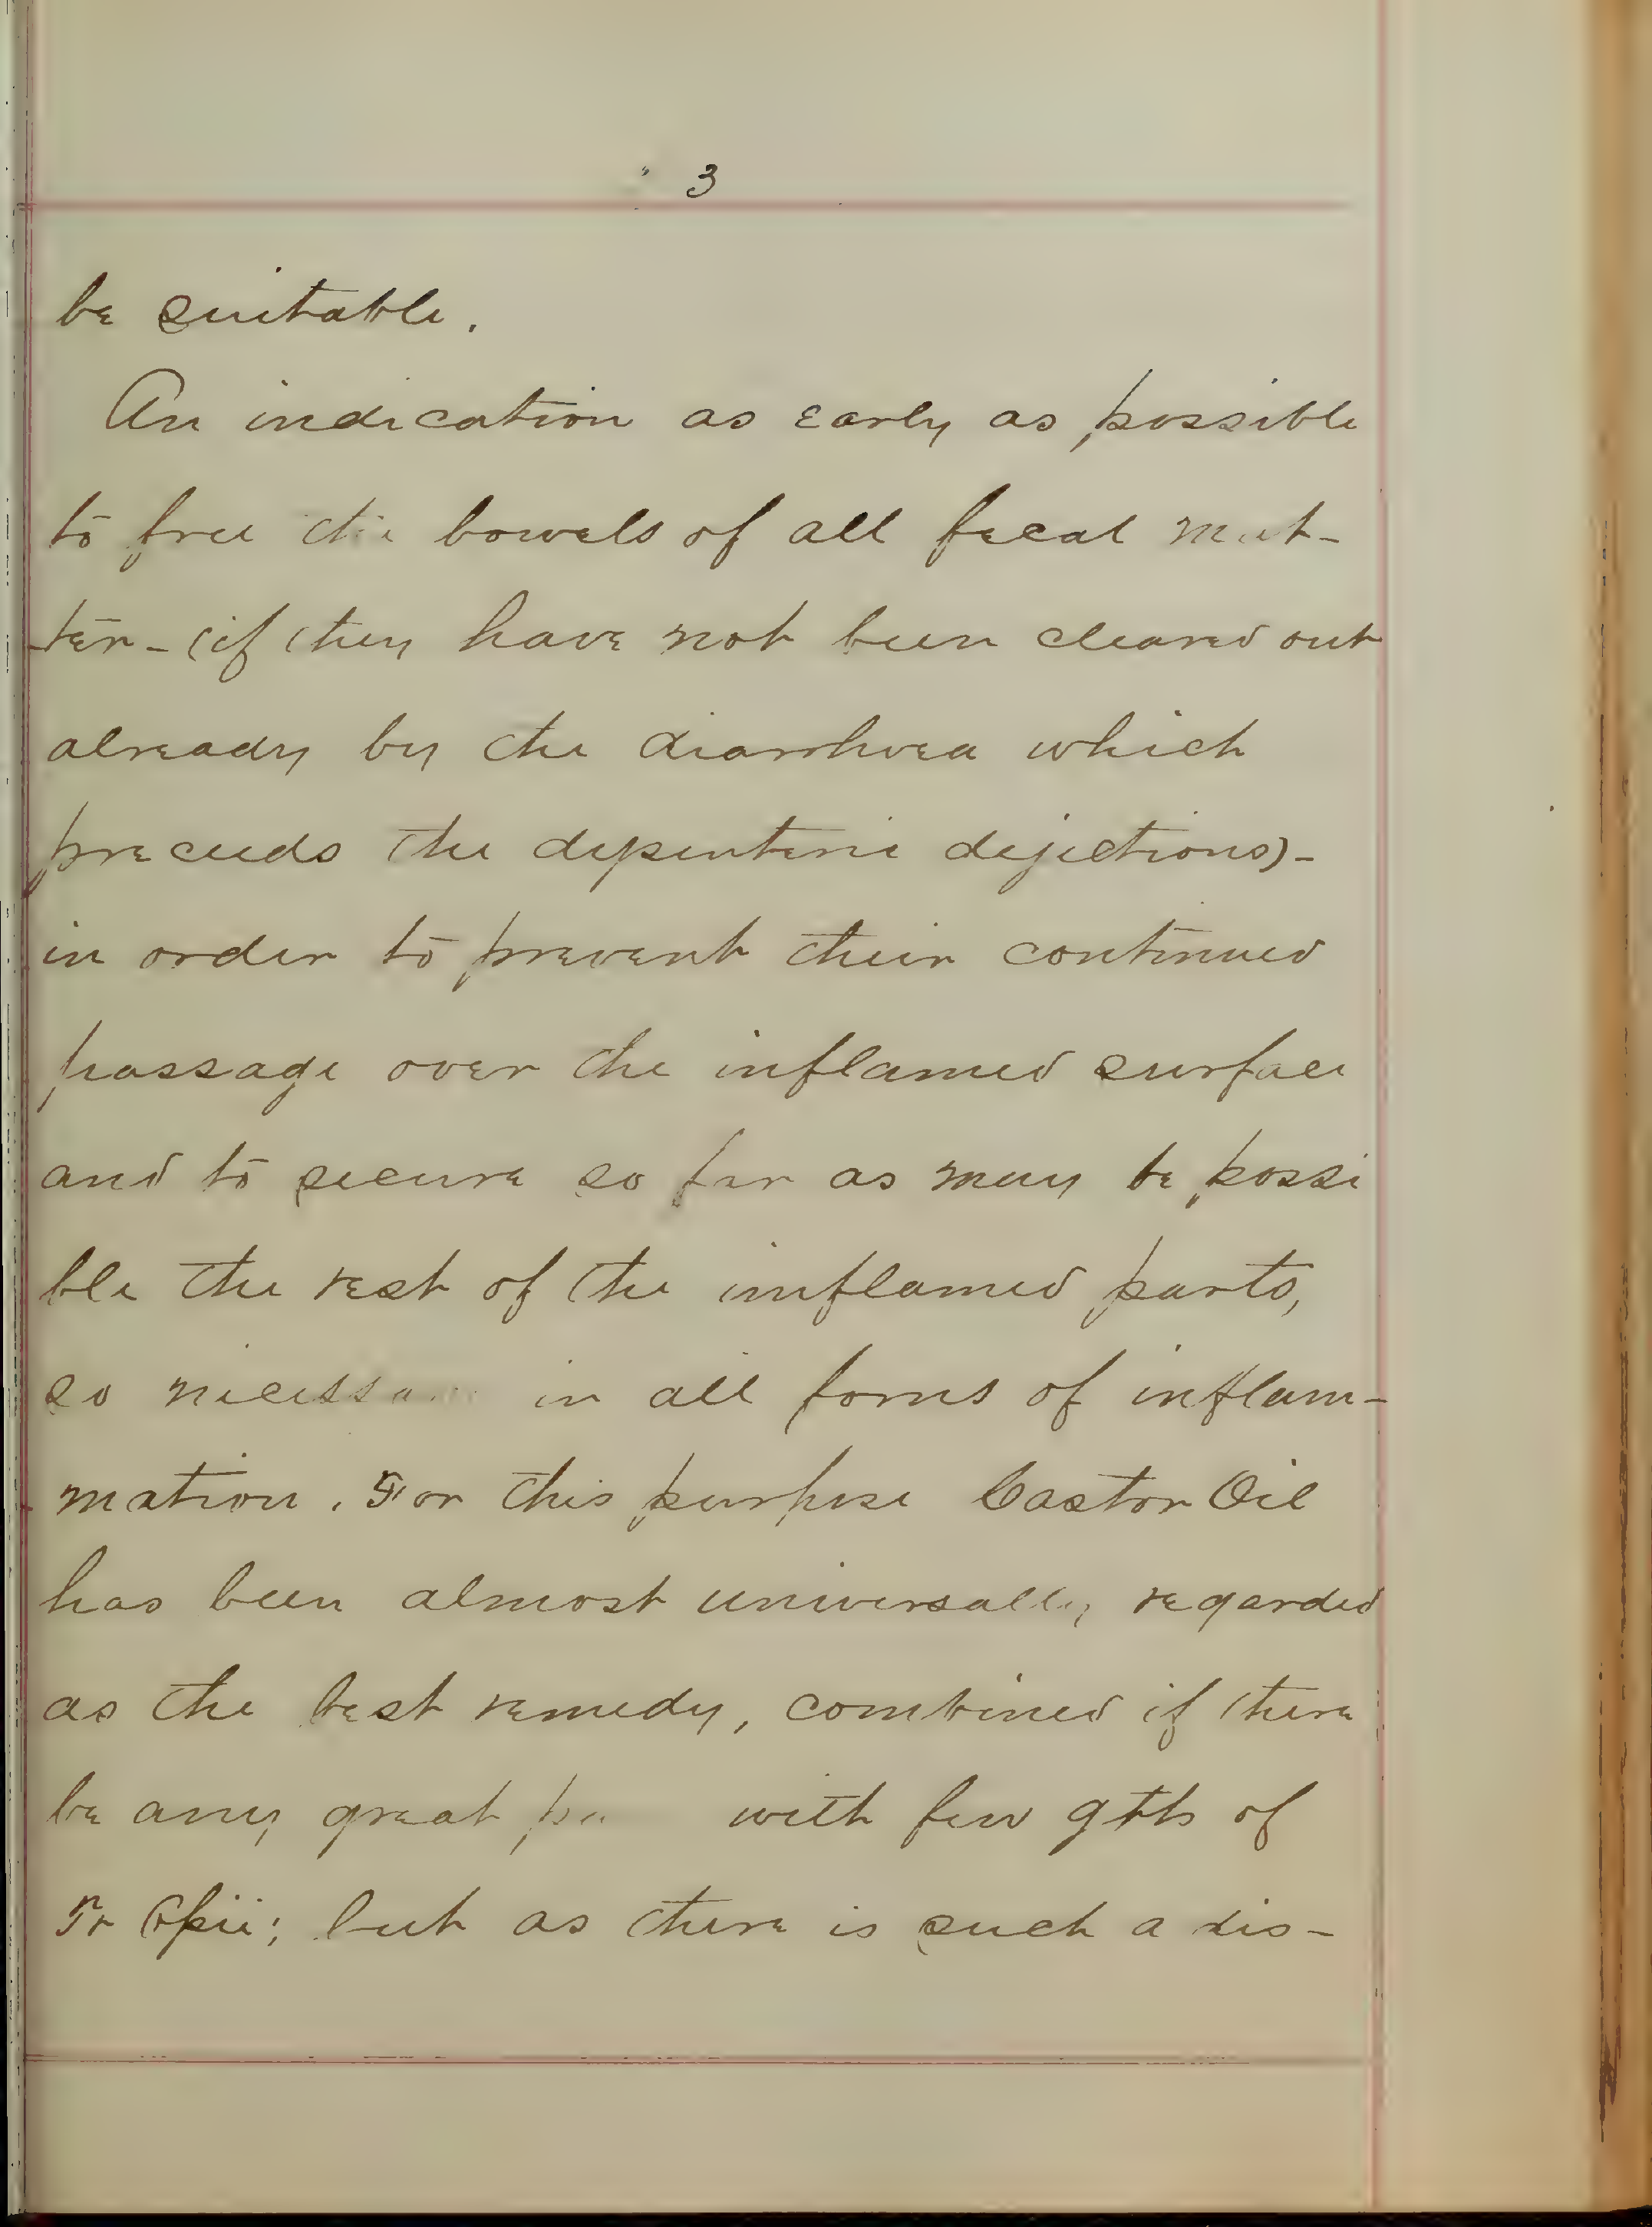 3
be suitable.
An indication as early as possible
to free the bowels of all fecal mat-
ter - (if they have not been cleared out
already by the diarrhoea which
preceeds the dysenteric dejections) -
in order to prevent their continued
passage over the inflamed surface
and to secure so far as may be possi
ble the rest of the imflamed parts,
so necessary in all forms of inflam-
mation. For this purpose Castor Oil
has been almost universally regarded
as the best remedy, combined if there
be any great with few gtts of
Tr Opii; but as there is such a dis-